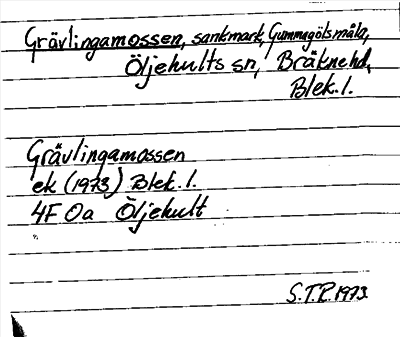 Grävlingamossen, sankmark, Gummagölsmåla,
Öljehults sn, Bräknehd,
Blek.l.
Grävlingamossen
ek (1973) Blek.l.
4F 0a Öljehult
S.T.P. 1973